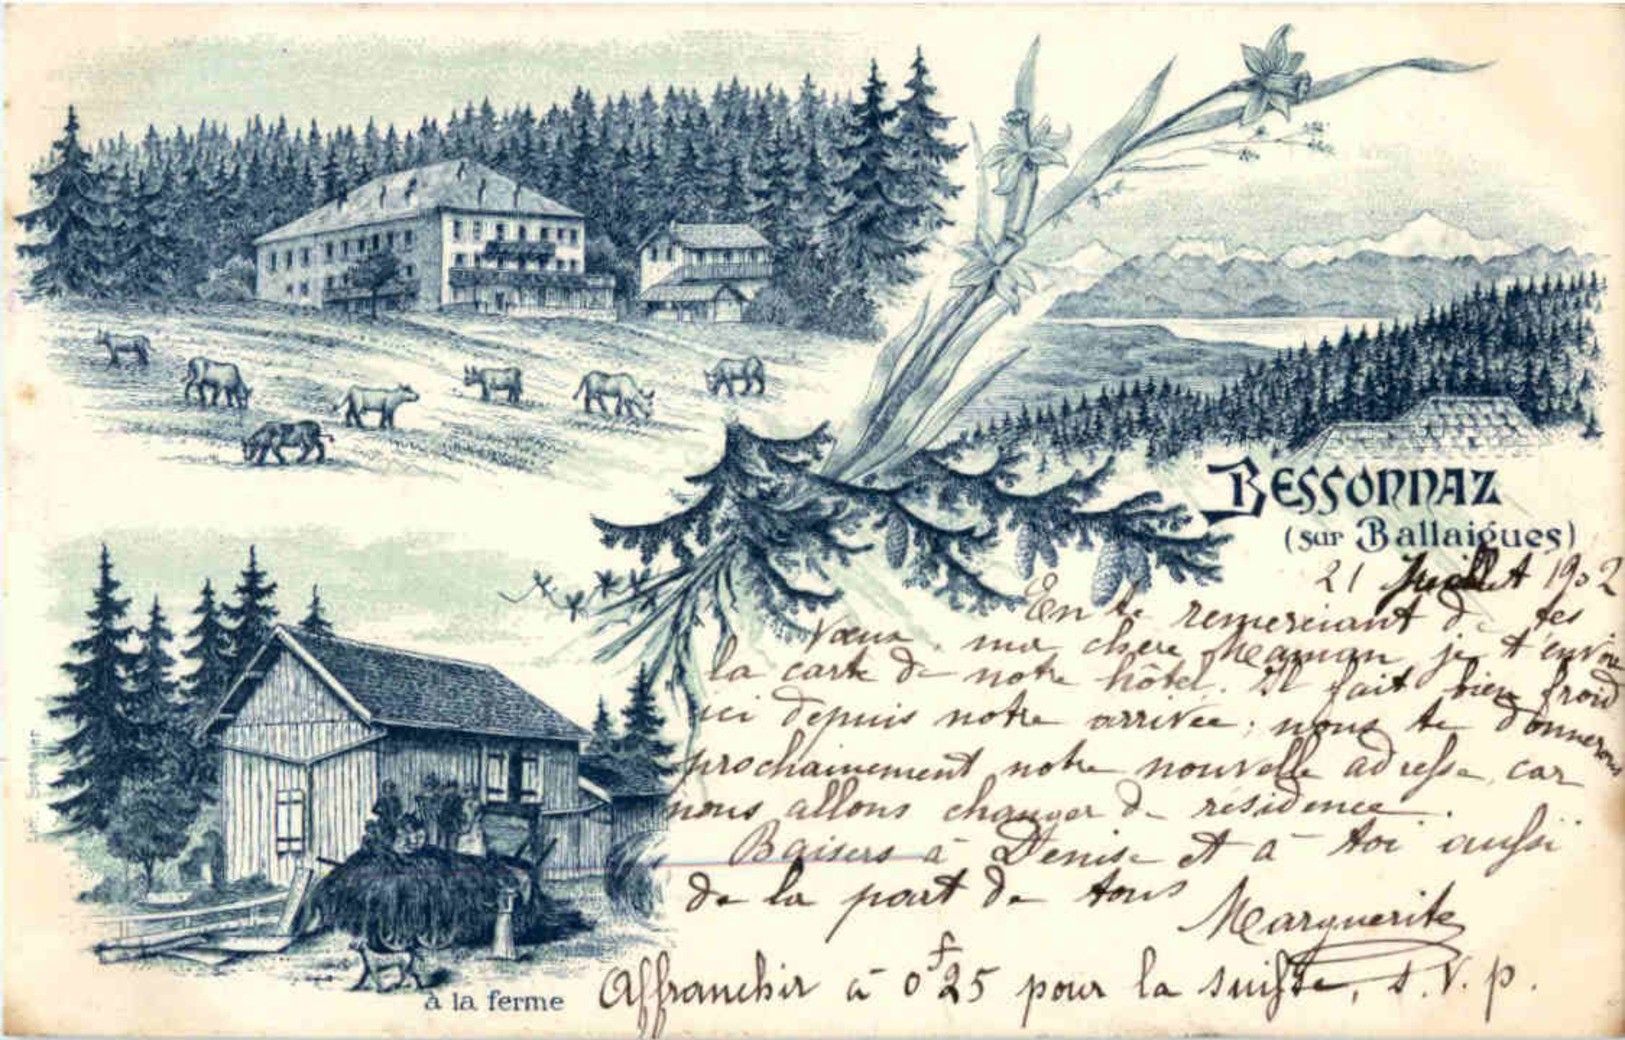 BESSONNAZ
(sur Ballaigues)
21 Juillet 1902
En te remerciant de tes
vœux, ma chere Maman, je t'envoie
la carte de notre hôtel. Il fait bien froid
ici depuis notre arrivée; nous te donnerons
prochainement notre nouvelle adresse, car
nous allons changer de résidence.
Baisers à Denise et à toi aussi
de la part de tous
Marguerite
Affranchir à 0f25 pour la suisse, s.v.p.
à la ferme